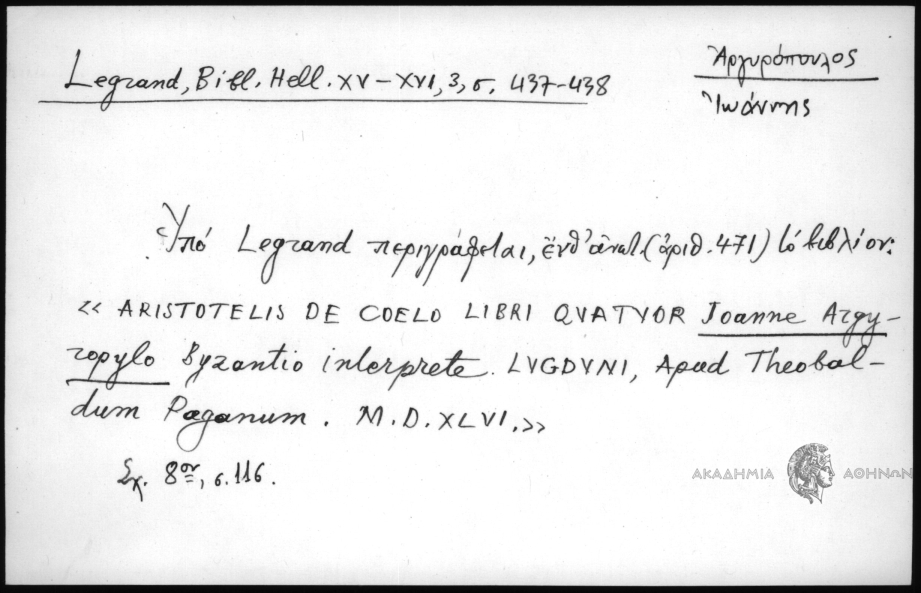 Legrand, Bibl. Hell. XV–XVI, 3, σ. 437-438
Ἀργυρόπουλος
Ἰωάννης
Ὑπό Legrand περιγράφεται, ἔνθ' ἀνωτ. (ἀριθ. 471) τό βιβλίον:
<< ARISTOTELIS DE COELO LIBRI QVATVOR Joanne Argy-
ropylo Byzantio interprete. LVGDVNI, Apud Theobal-
dum Paganum. M.D.XLVI.>>
Σχ. 8ον, σ. 116.
ΑΚΑΔΗΜΙΑ ΑΘΗΝΩΝ